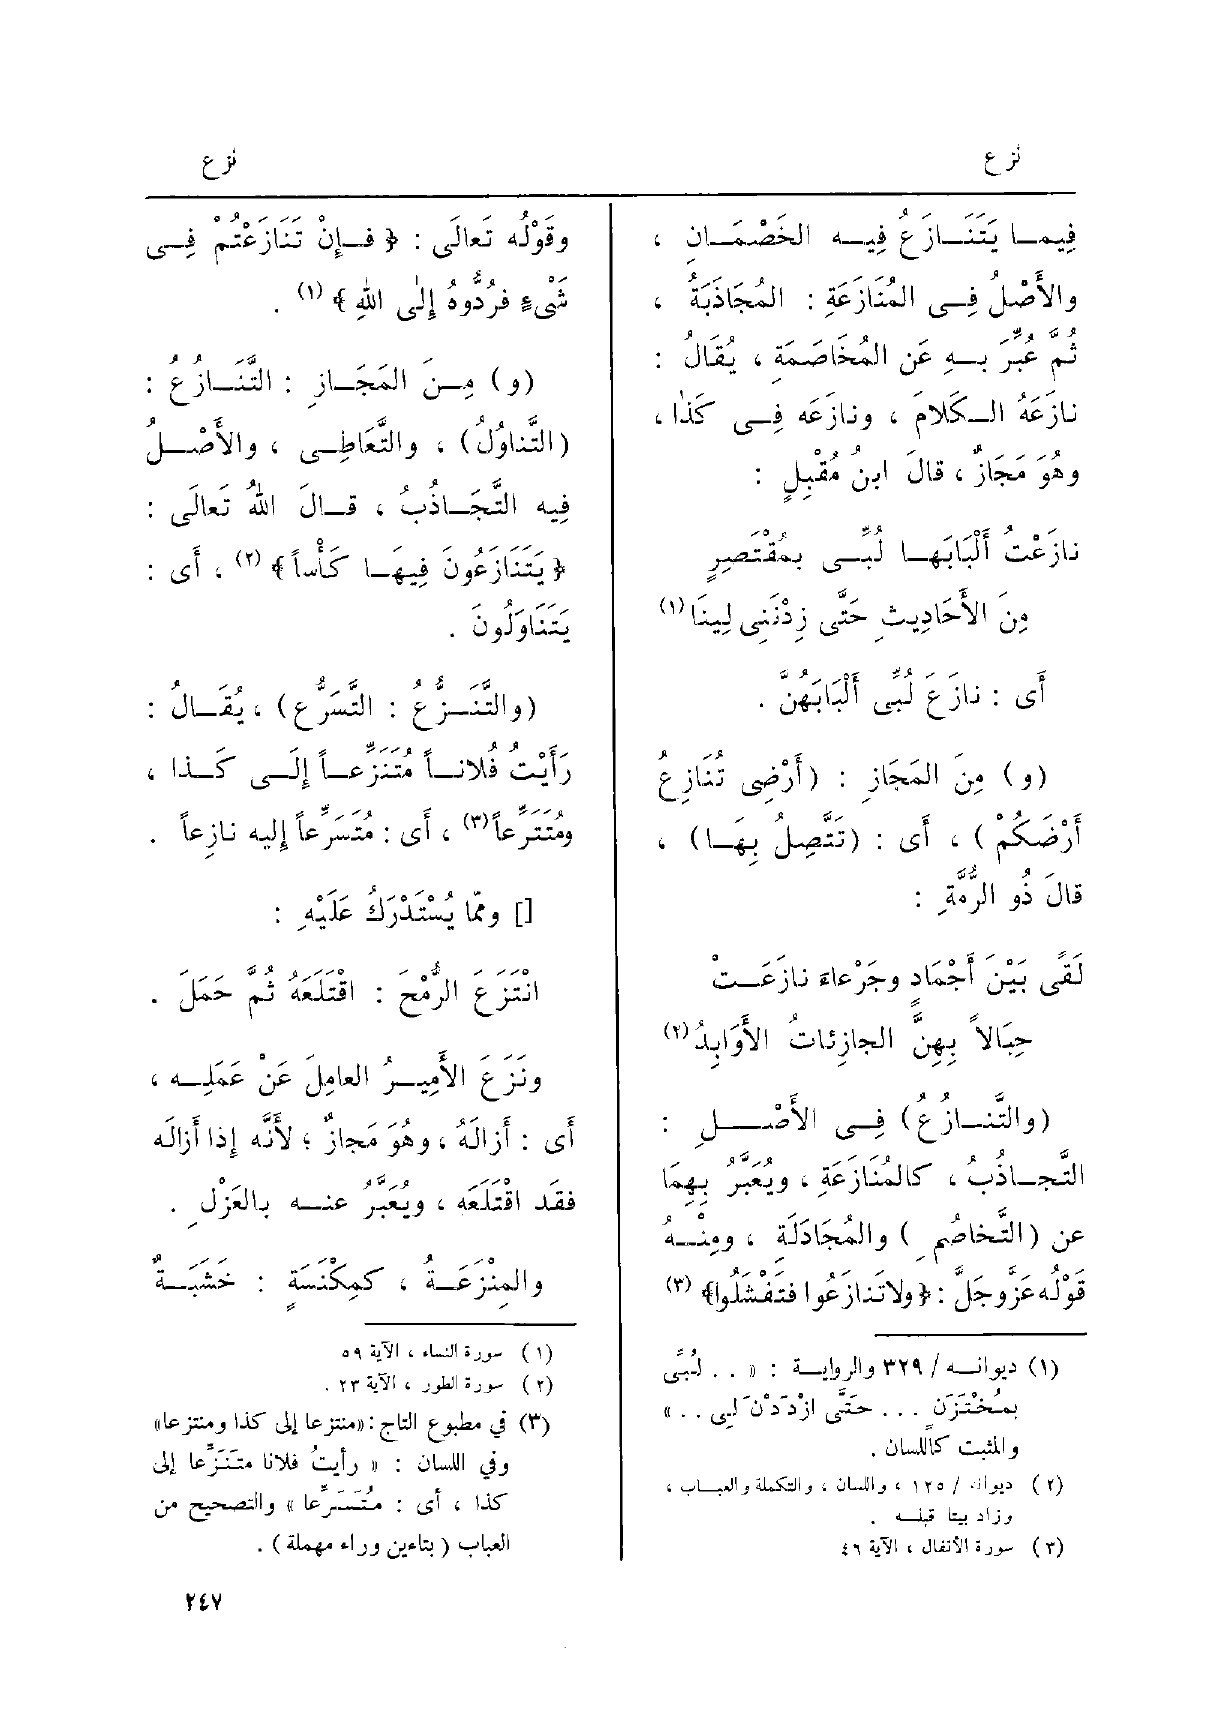 نزع
نزع
فِيمــا يَتَنَــازَعُ فِيــه الخَصْمَــانِ ،
والأَصْلُ فِــى المُنَازَعَةِ : المُجَاذَبَةُ ،
ثُمَّ عُبِّرَ بــهِ عَنِ المُخَاصَمَةِ ، يُقَالُ :
نازَعَهُ الــكَلامَ ، ونازَعَه فِــى كَذٰا ،
وهُوَ مَجَازٌ ، قالَ ابنُ مُقْبِلٍ :
نازَعْتُ أَلْبَابَهــا لُبِّــى بمُقْتَصِرٍ
مِنَ الأَحَادِيثِ حَتَّى زِدْنَنِى لِينَا (١)
أَى : نازَعَ لُبِّى أَلْبَابَهُنَّ .
(و) مِنَ المَجَازِ : (أَرْضِى تُنَازِعُ
أَرْضَكُمْ) ، أَى : (تَتَّصِلُ بِهَــا) ،
قالَ ذُو الرُّمَّةِ :
لَقًى بَيْنَ أَجْمَادٍ وجَرْعاءَ نازَعَــتْ
حِبَالاً بِهِنَّ الجازِئاتُ الأَوَابِدُ (٢)
(والتَّنــازُعُ) فِــى الأَصْــــلِ :
التَّجــاذُبُ ، كالمُنَازَعَةِ ، ويُعَبَّرُ بِهِمَا
عن (التَّخاصُمِ) والمُجَادَلَةِ ، ومِنْــهُ
قَوْلُه عَزَّ وجَلَّ : ﴿ولا تَنازَعُوا فتَفْشَلُوا﴾ (٣)
(١) ديوانــه / ٣٢٩ والروايــة : « . . لُبِّى
بمُخْتَزَنٍ . . . حَتَّى ازْدَدْنَ لِى . . »
والمثبت كاللسان .
(٢) ديوانه / ١٢٥ ، واللسان ، والتكملة والعبــاب ،
وزاد بيتا قبلــه .
(٣) سورة الأنفال ، الآية ٤٦
وقَوْلُه تَعالَى : ﴿ فــإِنْ تَنَازَعْتُم فِــى
شَىْءٍ فرُدُّوهُ إِلٰى اللهِ ﴾ (١) .
(و) مِــنَ المَجَــازِ : التَّنَــازُعُ :
(التَّناوُلُ) ، والتَّعَاطِــى ، والأَصْــلُ
فِيه التَّجَــاذُبُ ، قــالَ اللهُ تَعالَى :
﴿ يَتَنَازَعُونَ فِيهَــا كَأْساً ﴾ (٢) ، أَى :
يَتَنَاوَلُونَ .
(والتَّنَــزُّعُ : التَّسَرُّع) ، يُقَــالُ :
رَأَيْتُ فُلانــاً مُتَنَزِّعــاً إِلَــى كَــذا ،
ومُتَتَرِّعاً (٣) ، أَى : مُتَسَرِّعاً إليه نازِعاً .
[] وممّا يُسْتَدْرَكُ عَلَيْهِ :
انْتَزَعَ الرُّمْحَ : اقْتَلَعَهُ ثُمَّ حَمَلَ .
ونَزَعَ الأَمِيــرُ العامِلَ عَنْ عَمَلِــه ،
أَى : أَزالَهُ ، وهُوَ مَجازٌ ؛ لأَنَّه إذا أَزالَه
فقد اقْتَلَعَه ، ويُعَبَّرُ عنــه بالعَزْلِ .
والمِنْزَعَــةُ ، كمِكْنَسَةٍ : خَشَبَــةٌ
(١) سورة النساء ، الآية ٥٩
(٢) سورة الطور ، الآية ٢٣ .
(٣) في مطبوع التاج : «منتزعا إلى كذا ومنتزعا»
وفي اللسان : « رأيتُ فلانا متَنَزِّعا إلى
كذا ، أى : مُتَسَرِّعا » والتصحيح من
العباب ( بتاءين وراء مهملة ) .
٢٤٧